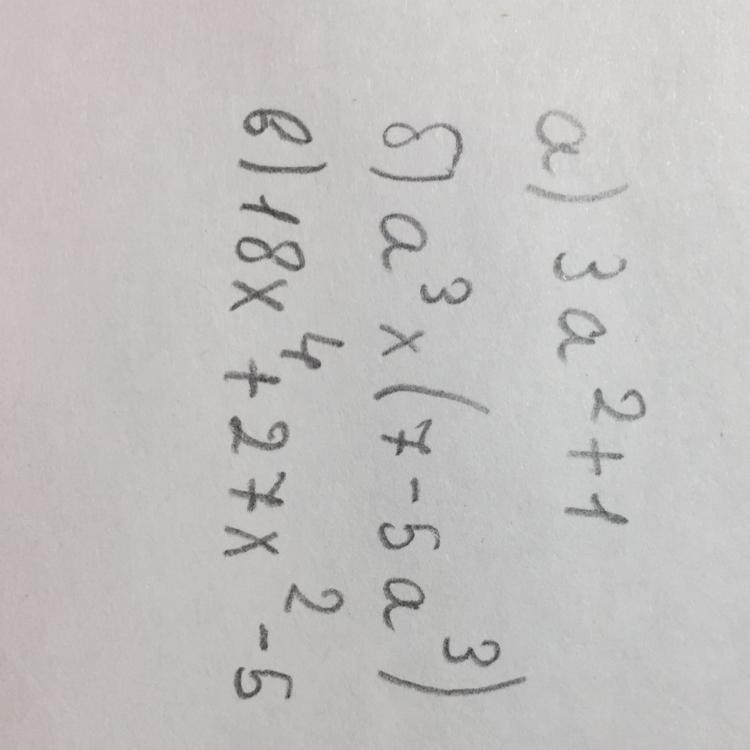 а) 3a²+1
б) a³x(7-5a³)
в) 18x⁴+27x²-5